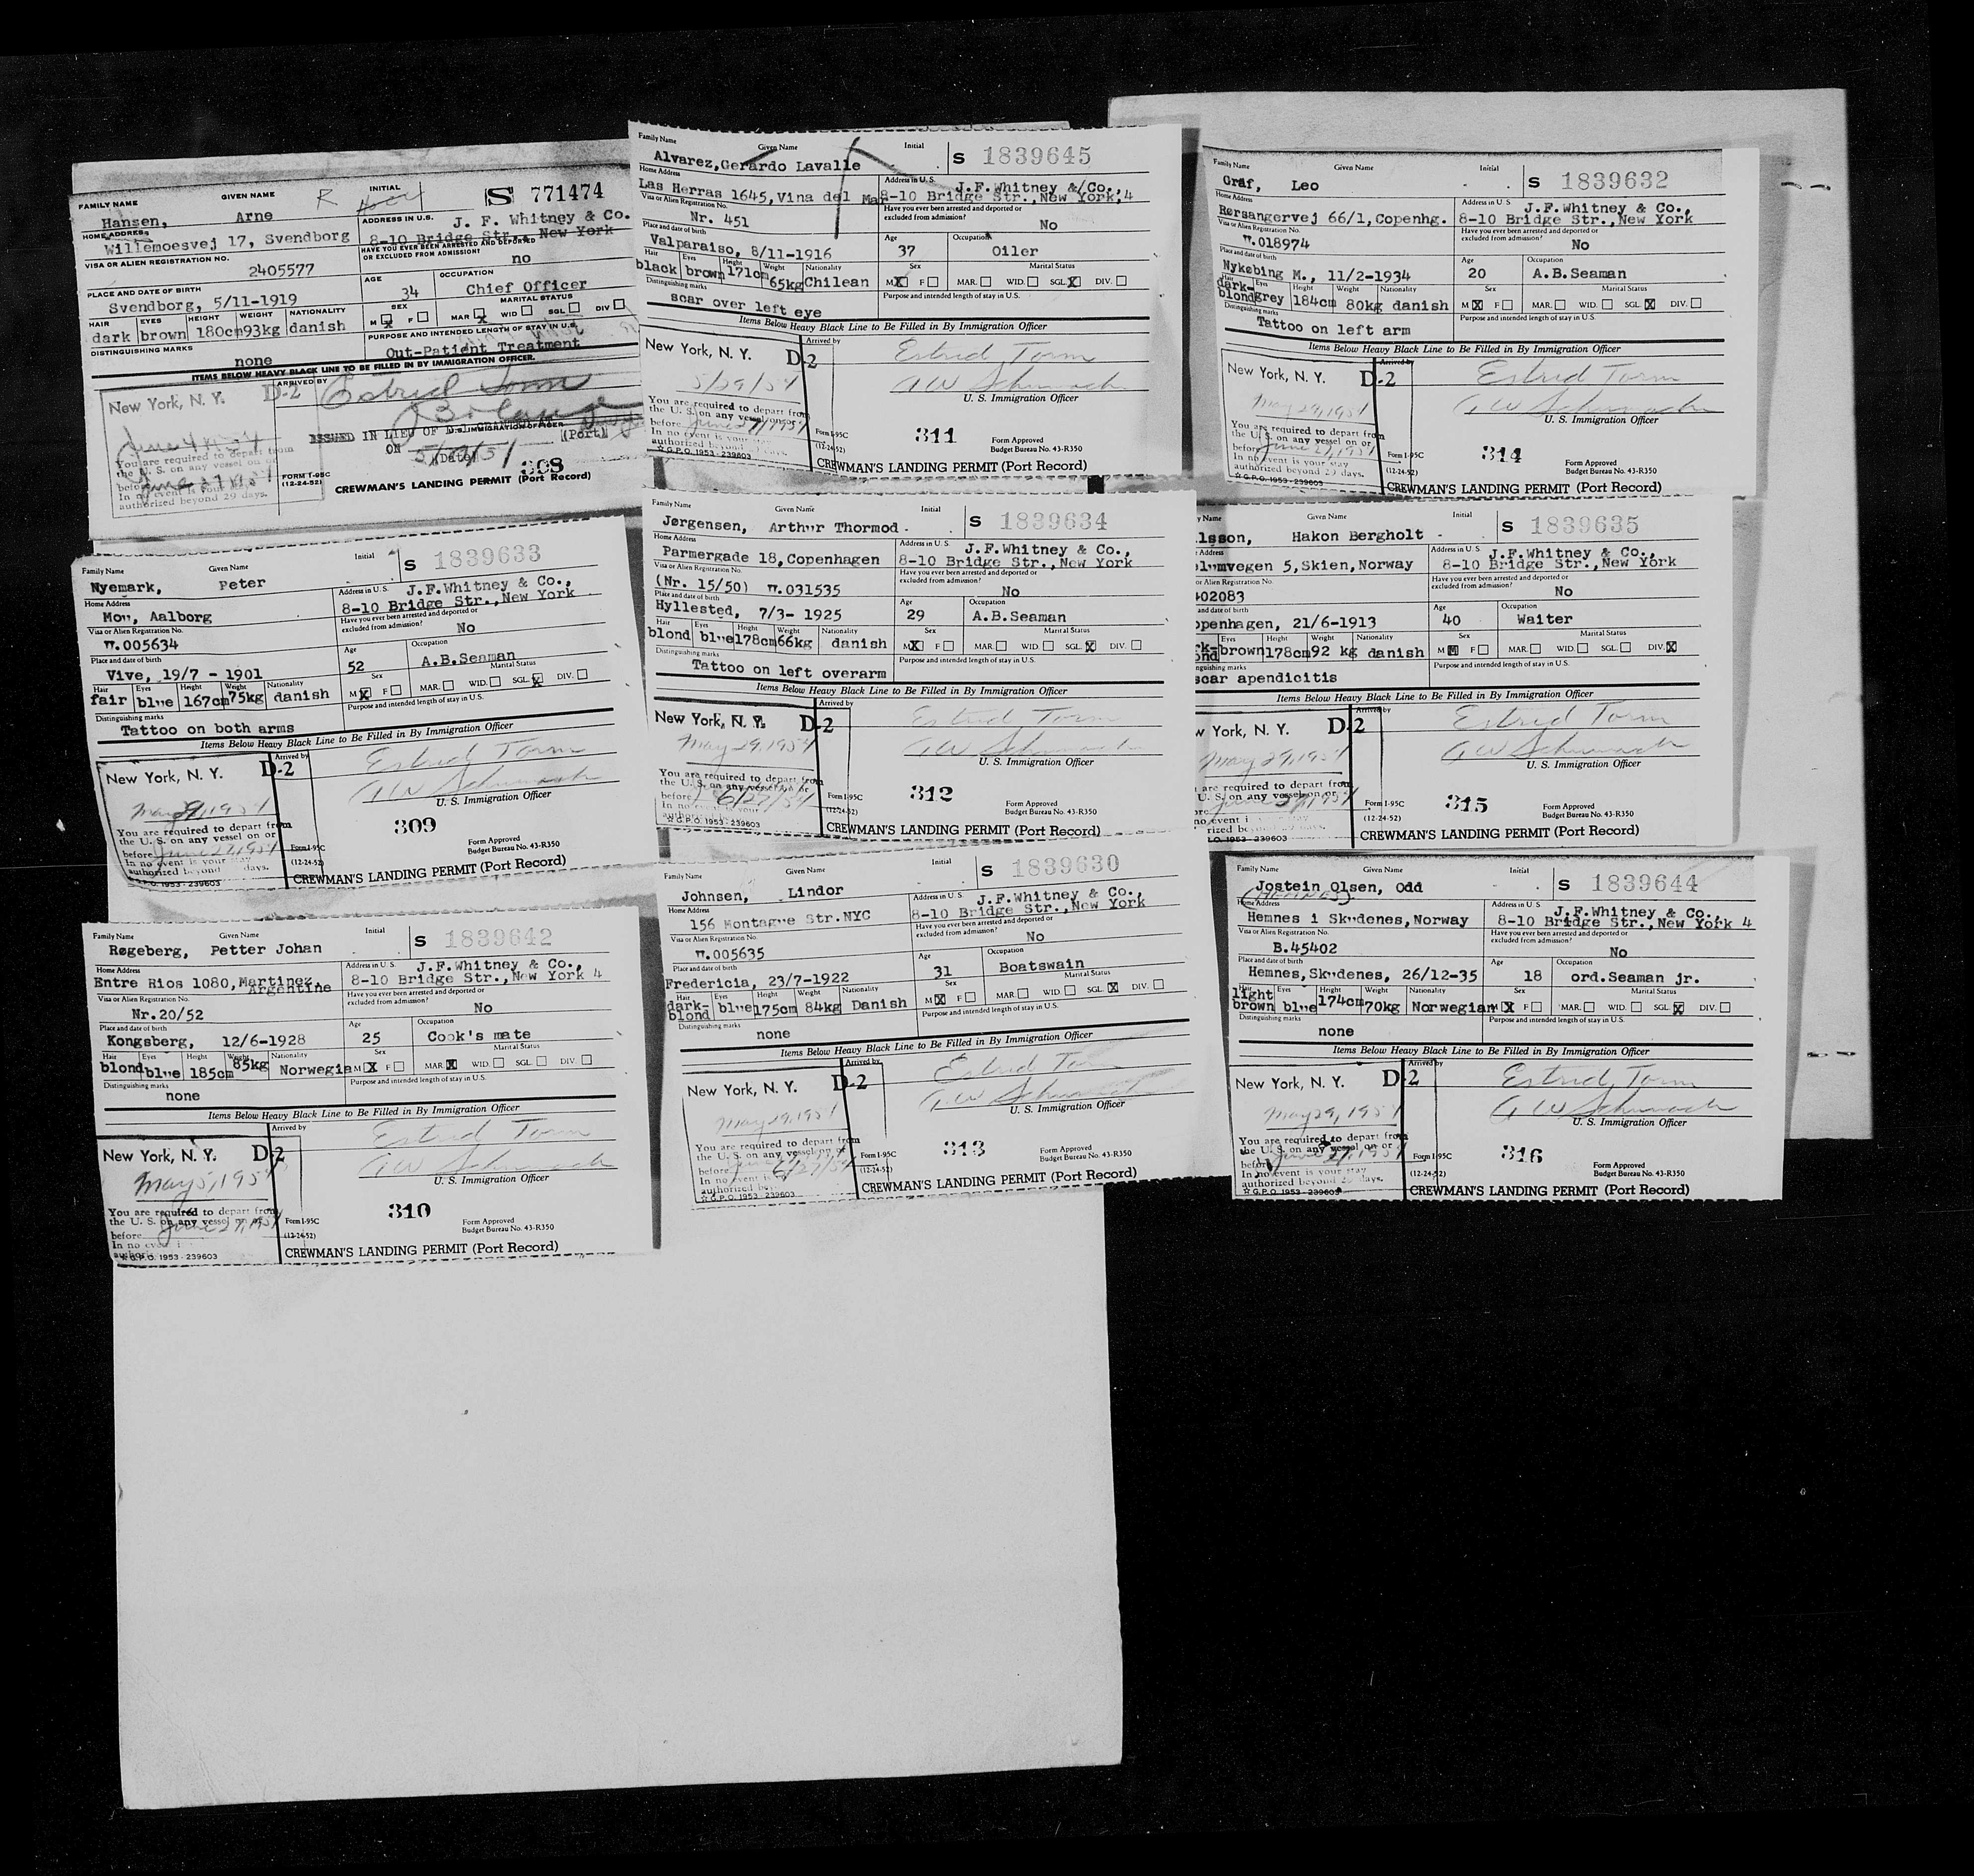 FAMILY NAME GIVEN NAME R INITIAL S 771474
Hansen, Arne
HOME ADDRESS ADDRESS IN U.S. J. F. Whitney & Co.
Willemoesvej 17, Svendborg 8-10 Bridge Str., New York
VISA OR ALIEN REGISTRATION NO. HAVE YOU EVER BEEN ARRESTED AND DEPORTED OR EXCLUDED FROM ADMISSION?
2405577 no
PLACE AND DATE OF BIRTH AGE OCCUPATION
Svendborg, 5/11-1919 34 Chief Officer
HAIR EYES HEIGHT WEIGHT NATIONALITY SEX MARITAL STATUS
dark brown 180cm 93kg danish M X F MAR X WID SGL DIV
DISTINGUISHING MARKS PURPOSE AND INTENDED LENGTH OF STAY IN U.S.
none Out-Patient Treatment
ITEMS BELOW HEAVY BLACK LINE TO BE FILLED IN BY IMMIGRATION OFFICER.
New York, N. Y. D-2 ARRIVED BY Estrid Torm
June 4 1954
ISSUED IN LIEU OF U.S. IMMIGRATION OFFICER (Port)
ON 5/29/54 (Date)
You are required to depart from
the U. S. on any vessel on or
before June 27 1954
In no event is your stay
authorized beyond 29 days.
FORM I-95C
(12-24-52)
308
CREWMAN'S LANDING PERMIT (Port Record)
Family Name Given Name Initial S 1839633
Nyemark, Peter
Home Address Address in U.S. J.F.Whitney & Co.,
Mou, Aalborg 8-10 Bridge Str.,New York
Visa or Alien Registration No. Have you ever been arrested and deported or excluded from admission?
W.005634 No
Place and date of birth Age Occupation
Vive, 19/7 - 1901 52 A.B.Seaman
Hair Eyes Height Weight Nationality Sex Marital Status
fair blue 167cm 75kg danish M X F MAR. WID. SGL. X DIV.
Distinguishing marks Purpose and intended length of stay in U.S.
Tattoo on both arms
Items Below Heavy Black Line to Be Filled in By Immigration Officer
New York, N. Y. D-2 Arrived by Estrid Torm
May 29, 1954
U. S. Immigration Officer
You are required to depart from
the U. S. on any vessel on or
before June 27, 1954
In no event is your stay
authorized beyond days.
G.P.O. 1953-239603
Form I-95C
(12-24-52)
309
Form Approved
Budget Bureau No. 43-R350
CREWMAN'S LANDING PERMIT (Port Record)
Family Name Given Name Initial S 1839642
Røgeberg, Petter Johan
Home Address Address in U.S. J.F.Whitney & Co.,
Entre Rios 1080,Martinez, Argentine 8-10 Bridge Str.,New York 4
Visa or Alien Registration No. Have you ever been arrested and deported or excluded from admission?
Nr.20/52 No
Place and date of birth Age Occupation
Kongsberg, 12/6-1928 25 Cook's mate
Hair Eyes Height Weight Nationality Sex Marital Status
blond blue 185cm 85kg Norwegian M X F MAR. X WID. SGL. DIV.
Distinguishing marks Purpose and intended length of stay in U.S.
none
Items Below Heavy Black Line to Be Filled in By Immigration Officer
New York, N. Y. D-2 Arrived by Estrid Torm
U. S. Immigration Officer
You are required to depart from
the U. S. on any vessel on or
before June 27, 1954
☆ G.P.O. 1953-239603
Form I-95C
(12-24-52)
310
Form Approved
Budget Bureau No. 43-R350
CREWMAN'S LANDING PERMIT (Port Record)
Family Name Given Name Initial S 1839645
Alvarez,Gerardo Lavalle
Home Address Address in U.S. J.F.Whitney &/Co.,
Las Herras 1645,Vina del Mar 8-10 Bridge Str.,New York,4
Visa or Alien Registration No. Have you ever been arrested and deported or excluded from admission?
Nr. 451 No
Place and date of birth Age Occupation
Valparaiso, 8/11-1916 37 Oiler
Hair Eyes Height Weight Nationality Sex Marital Status
black brown 171cm 65kg Chilean M X F MAR. WID. SGL. X DIV.
Distinguishing marks Purpose and intended length of stay in U.S.
scar over left eye
Items Below Heavy Black Line to Be Filled in By Immigration Officer
New York, N. Y. D-2 Arrived by Estrid Torm
5/29/54
U. S. Immigration Officer
You are required to depart from
the U. S. on any vessel on or
before June 27, 1954
In no event is your stay
authorized beyond days.
☆ G.P.O. 1953-239603
Form I-95C
(12-24-52)
311
Form Approved
Budget Bureau No. 43-R350
CREWMAN'S LANDING PERMIT (Port Record)
Family Name Given Name Initial S 1839634
Jørgensen, Arthur Thormod
Home Address Address in U.S. J.F.Whitney & Co.,
Parmergade 18,Copenhagen 8-10 Bridge Str.,New York
Visa or Alien Registration No. Have you ever been arrested and deported or excluded from admission?
(Nr. 15/50) W.031535 No
Place and date of birth Age Occupation
Hyllested, 7/3- 1925 29 A.B.Seaman
Hair Eyes Height Weight Nationality Sex Marital Status
blond blue 178cm 66kg danish M X F MAR. WID. SGL. X DIV.
Distinguishing marks Purpose and intended length of stay in U.S.
Tattoo on left overarm
Items Below Heavy Black Line to Be Filled in By Immigration Officer
New York, N. Y. D-2 Arrived by Estrid Torm
May 29, 1954
U. S. Immigration Officer
You are required to depart from
the U. S. on any vessel on or
before 6/27/54
In no event is your
☆ G.P.O. 1953-239603
Form I-95C
(12-24-52)
312
Form Approved
Budget Bureau No. 43-R350
CREWMAN'S LANDING PERMIT (Port Record)
Family Name Given Name Initial S 1839630
Johnsen, Lindor
Home Address Address in U.S. J.F.Whitney & Co.,
156 Montague Str.NYC 8-10 Bridge Str.,New York
Visa or Alien Registration No. Have you ever been arrested and deported or excluded from admission?
W.005635 No
Place and date of birth Age Occupation
Fredericia, 23/7-1922 31 Boatswain
Hair Eyes Height Weight Nationality Sex Marital Status
dark-blond blue 175cm 84kg Danish M X F MAR. WID. SGL. X DIV.
Distinguishing marks Purpose and intended length of stay in U.S.
none
Items Below Heavy Black Line to Be Filled in By Immigration Officer
New York, N. Y. D-2 Arrived by Estrid Torm
May 29, 1954
U. S. Immigration Officer
You are required to depart from
the U. S. on any vessel on or
before 6/27/54
In no event is
authorized
☆ G.P.O. 1953-239603
Form I-95C
(12-24-52)
313
Form Approved
Budget Bureau No. 43-R350
CREWMAN'S LANDING PERMIT (Port Record)
Family Name Given Name Initial S 1839632
Gräf, Leo
Home Address Address in U.S. J.F.Whitney & Co.,
Rørsangervej 66/1,Copenhg. 8-10 Bridge Str.,New York
Visa or Alien Registration No. Have you ever been arrested and deported or excluded from admission?
W.018974 No
Place and date of birth Age Occupation
Nykøbing M., 11/2-1934 20 A.B.Seaman
Hair Eyes Height Weight Nationality Sex Marital Status
dark-blond grey 184cm 80kg danish M X F MAR. WID. SGL. X DIV.
Distinguishing marks Purpose and intended length of stay in U.S.
Tattoo on left arm
Items Below Heavy Black Line to Be Filled in By Immigration Officer
New York, N. Y. D-2 Arrived by Estrid Torm
May 29, 1954
U. S. Immigration Officer
You are required to depart from
the U. S. on any vessel on or
before June 27, 1954
In no event is your stay
authorized beyond 29 days.
☆ G.P.O. 1953-239603
Form I-95C
(12-24-52)
314
Form Approved
Budget Bureau No. 43-R350
CREWMAN'S LANDING PERMIT (Port Record)
y Name Given Name Initial S 1839635
lsson, Hakon Bergholt
Address Address in U.S. J.F.Whitney & Co.,
lumvegen 5,Skien,Norway 8-10 Bridge Str.,New York
or Alien Registration No. Have you ever been arrested and deported or excluded from admission?
402083 No
and date of birth Age Occupation
openhagen, 21/6-1913 40 Waiter
Eyes Height Weight Nationality Sex Marital Status
brown 178cm 92 kg danish M X F MAR. WID. SGL. DIV. X
nguishing marks Purpose and intended length of stay in U.S.
scar apendicitis
Items Below Heavy Black Line to Be Filled in By Immigration Officer
w York, N. Y. D-2 Arrived by Estrid Torm
May 29, 1954
U. S. Immigration Officer
are required to depart from
U. S. on any vessel on or
June 27, 1954
Form I-95C
(12-24-52)
315
Form Approved
Budget Bureau No. 43-R350
CREWMAN'S LANDING PERMIT (Port Record)
Family Name Given Name Initial S 1839644
Jostein Olsen, Odd
(HEMNES)
Home Address Address in U.S. J.F.Whitney & Co.,
Hemnes i Skudenes,Norway 8-10 Bridge Str.,New York 4
Visa or Alien Registration No. Have you ever been arrested and deported or excluded from admission?
B.45402 No
Place and date of birth Age Occupation
Hemnes,Skudenes, 26/12-35 18 ord.Seaman jr.
Hair Eyes Height Weight Nationality Sex Marital Status
light brown blue 174cm 70kg Norwegian M X F MAR. WID. SGL. X DIV.
Distinguishing marks Purpose and intended length of stay in U.S.
none
Items Below Heavy Black Line to Be Filled in By Immigration Officer
New York, N. Y. D-2 Arrived by Estrid Torm
May 29, 1954
U. S. Immigration Officer
You are required to depart from
the U. S. on any vessel on or
before June 27, 1954
In no event is your stay
authorized beyond days.
☆ G.P.O. 1953-239603
Form I-95C
(12-24-52)
316
Form Approved
Budget Bureau No. 43-R350
CREWMAN'S LANDING PERMIT (Port Record)